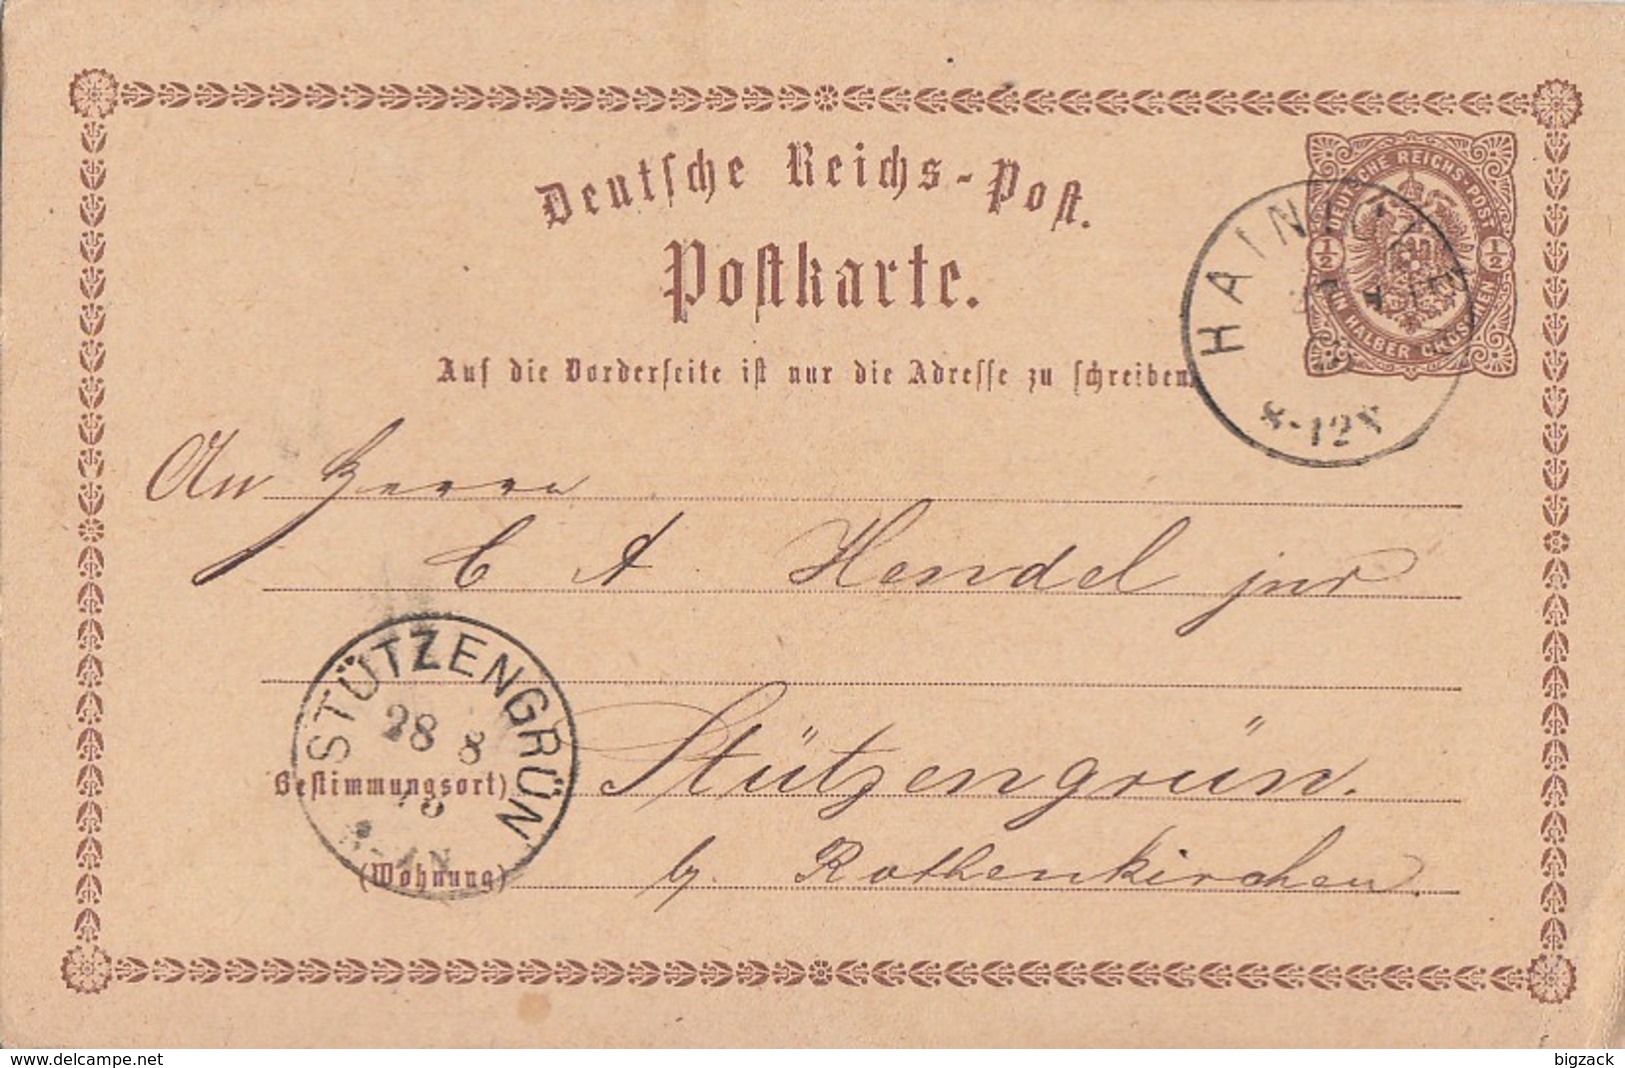 Deutsche Reichs-Post.
Postkarte.
Auf die Vorderseite ist nur die Adresse zu schreiben.
DEUTSCHE REICHS-POST
1/2
1/2
EIN HALBER GROSCHEN
HAINI
8-12
An Herrn
C A Hendel jnr
STÜTZENGRÜN
28 8
Bestimmungsort)
Stützengrün.
(Wohnung)
b/. Rothenkirchen.
www.delcampe.net
bigzack